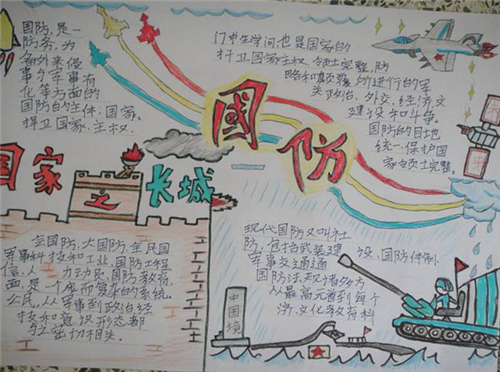 国防，是一
防务，为
备外来侵
事 军事有
化等方面的
国防的主体，国家。
捍卫国家、主权
门中生学问，也是国家的
捍卫国家主权、领土完整，防
略和颠覆，所进行的军
政治、外交、经济、文
建设和斗争。
国防的目地
统一，保护国
家领土完整。
國防
国家之长城
全国防，大国防，全民国
军事科技和工业，国防工程
动员，国防教育，
面，是个庞而复杂的系统。
公民，从军事到政治经
技和意识形态都
密切相关。
现代国防又叫社
防，包括武装建设，国防体制
军事交通通
国防涉及
从最高元首到每个
济、文化教育科
中国境